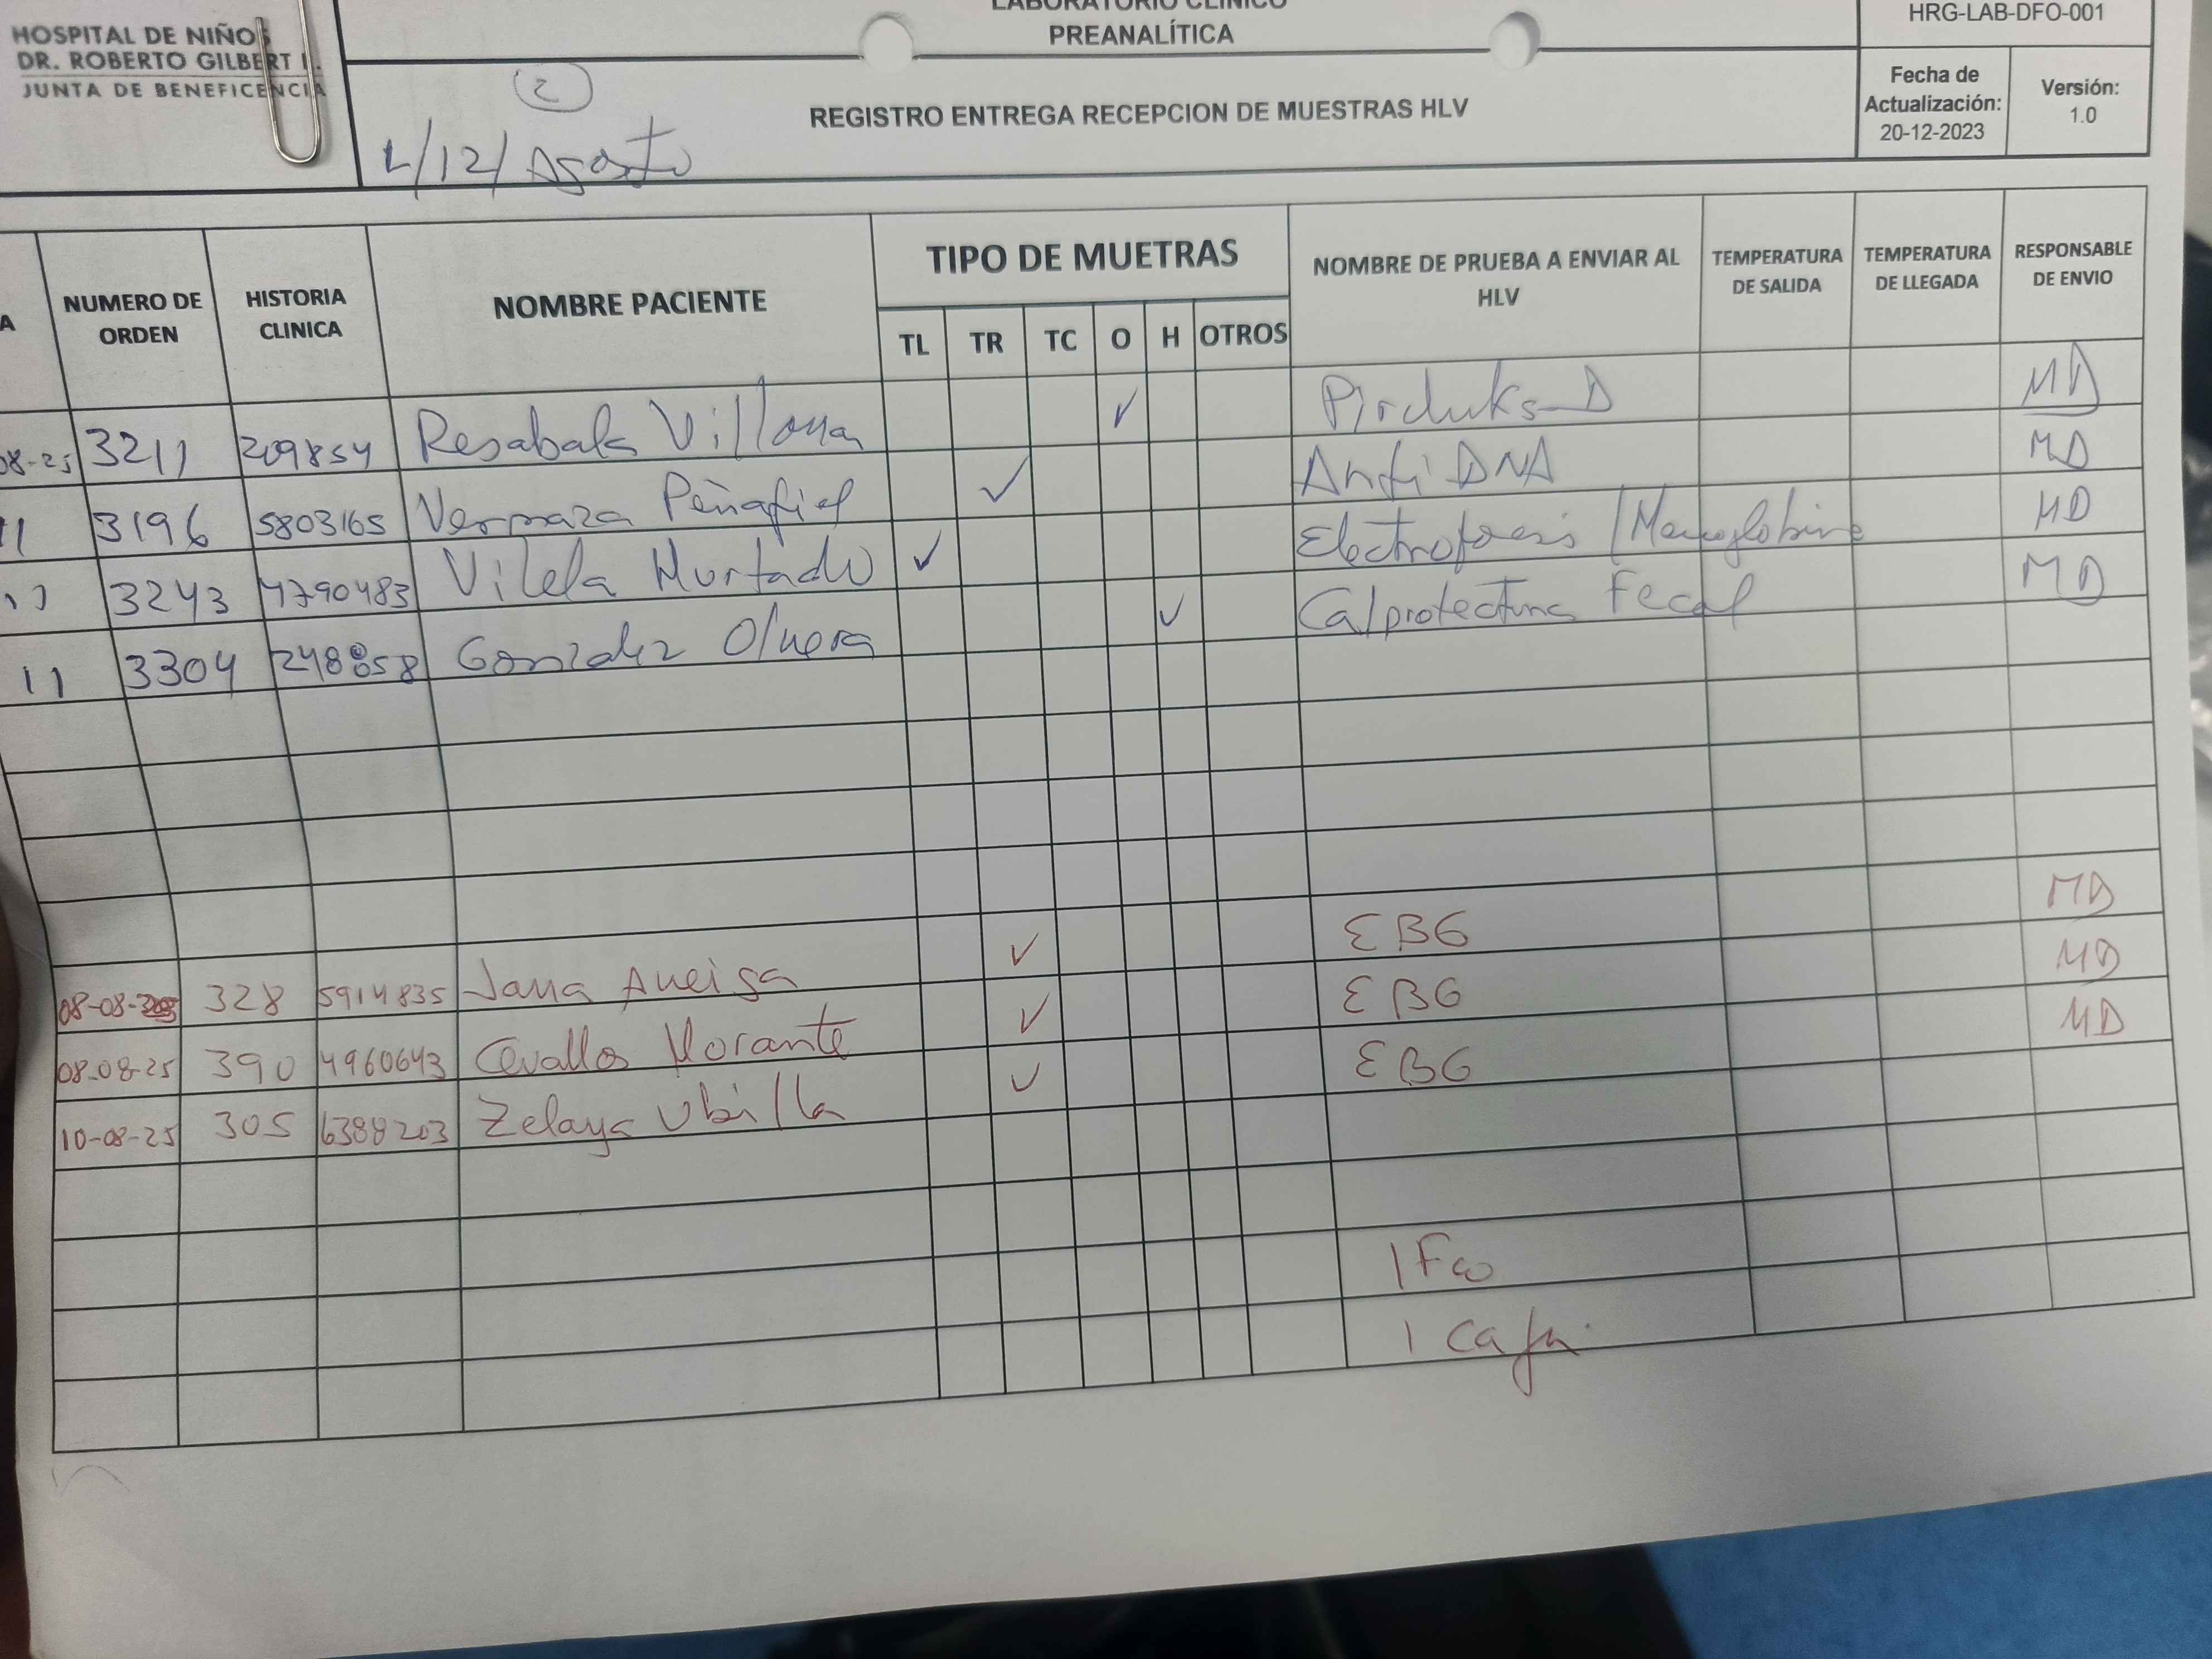 HOSPITAL DE NIÑOS
DR. ROBERTO GILBERT
JUNTA DE BENEFICENCIA
LABORATORIO CLÍNICO
PREANALÍTICA
HRG-LAB-DFO-001
2
L/12/Agosto
REGISTRO ENTREGA RECEPCION DE MUESTRAS HLV
Fecha de
Actualización:
20-12-2023
Versión:
1.0
A
NUMERO DE
ORDEN
HISTORIA
CLINICA
NOMBRE PACIENTE
TIPO DE MUETRAS
TL TR TC O H OTROS
NOMBRE DE PRUEBA A ENVIAR AL
HLV
TEMPERATURA
DE SALIDA
TEMPERATURA
DE LLEGADA
RESPONSABLE
DE ENVIO
08-25 3211 209854 Resabala ✓ MD
11 3196 5803165 Vernaza Peñafiel ✓ Anti DNA MD
11 3243 4790483 Vilela Hurtado ✓ MD
11 3304 Gonzalez Olvera ✓ Fecal MD
08-08- 328 5914835 ✓ EBG MD
08-08-25 390 4960643 Cevallos Morante ✓ EBG MD
10-08-25 305 6388203 Zelaya Ubilla ✓ EBG MD
1 Fco
1 Caja.